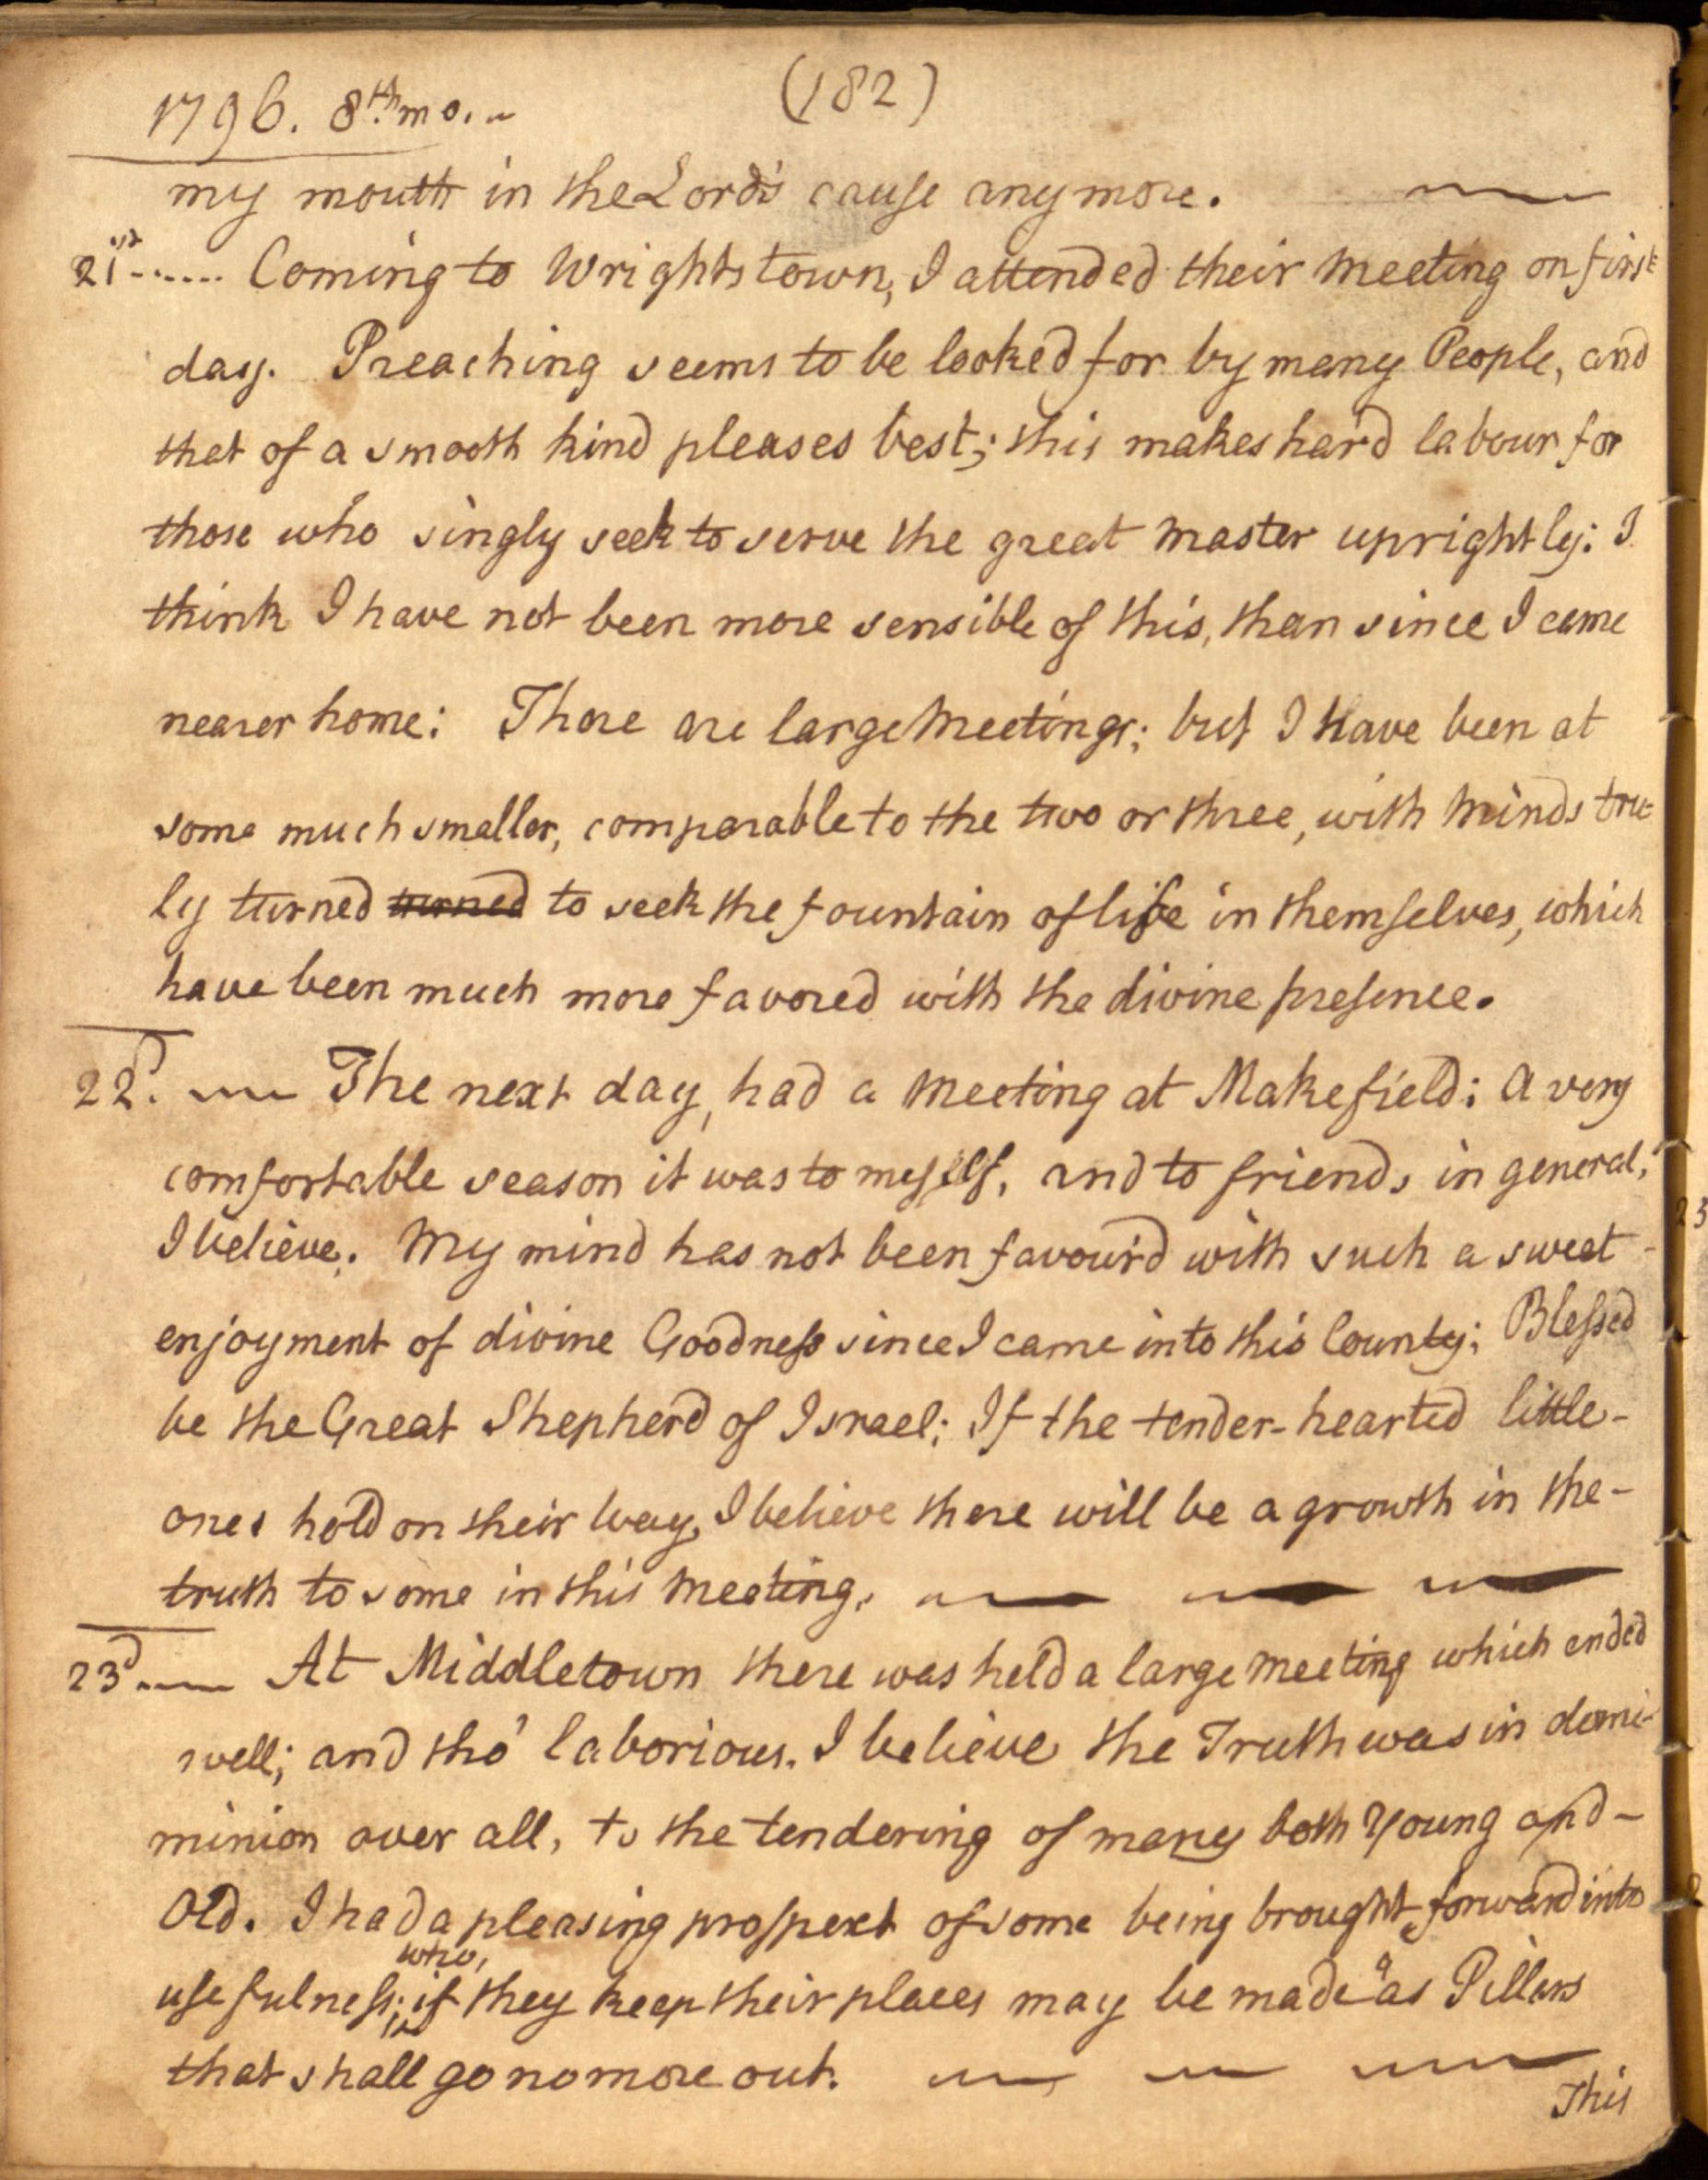 1796. 8th mo.
(182)
my mouth in the Lord's cause any more.
21st Coming to Wrightstown, I attended their meeting on first
day. Preaching seems to be looked for by many People, and
that of a smooth kind pleases best; this makes hard labour for
those who singly seek to serve the great Master uprightly: I
think I have not been more sensible of this, than since I came
nearer home: There are large Meetings; but I have been at
some much smaller, comparable to the two or three, with minds tru-
ly turned turned to seek the fountain of life in themselves, which
have been much more favored with the divine presence.
22d. The next day, had a meeting at Makefield: a very
comfortable season it was to myself, and to friends in general,
I believe. My mind has not been favour'd with such a sweet -
enjoyment of divine Goodness since I came into this County; Blessed
be the Great Shepherd of Israel; If the tender-hearted little-
ones hold on their way, I believe there will be a growth in the-
truth to some in this meeting.
23d At Middletown there was held a large meeting which ended
well; and tho' laborious. I believe the Truth was in domi-
minion over all, to the tendering of many both Young and-
Old. I had a pleasing prospect of some being brought forward into
who,
usefulness; if they keep their places may be made "as Pillars
that shall go no more out.
This
23